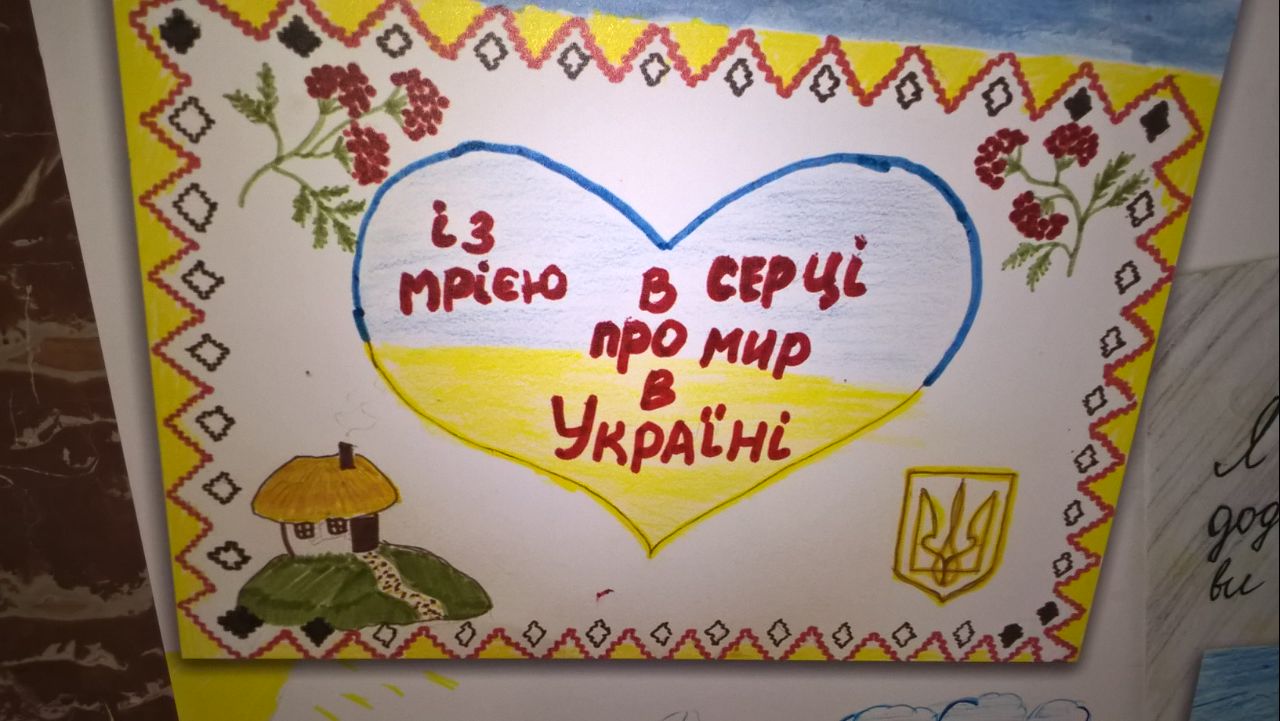 із
мрією в серці
про мир
в
Україні
Я
дод
ви